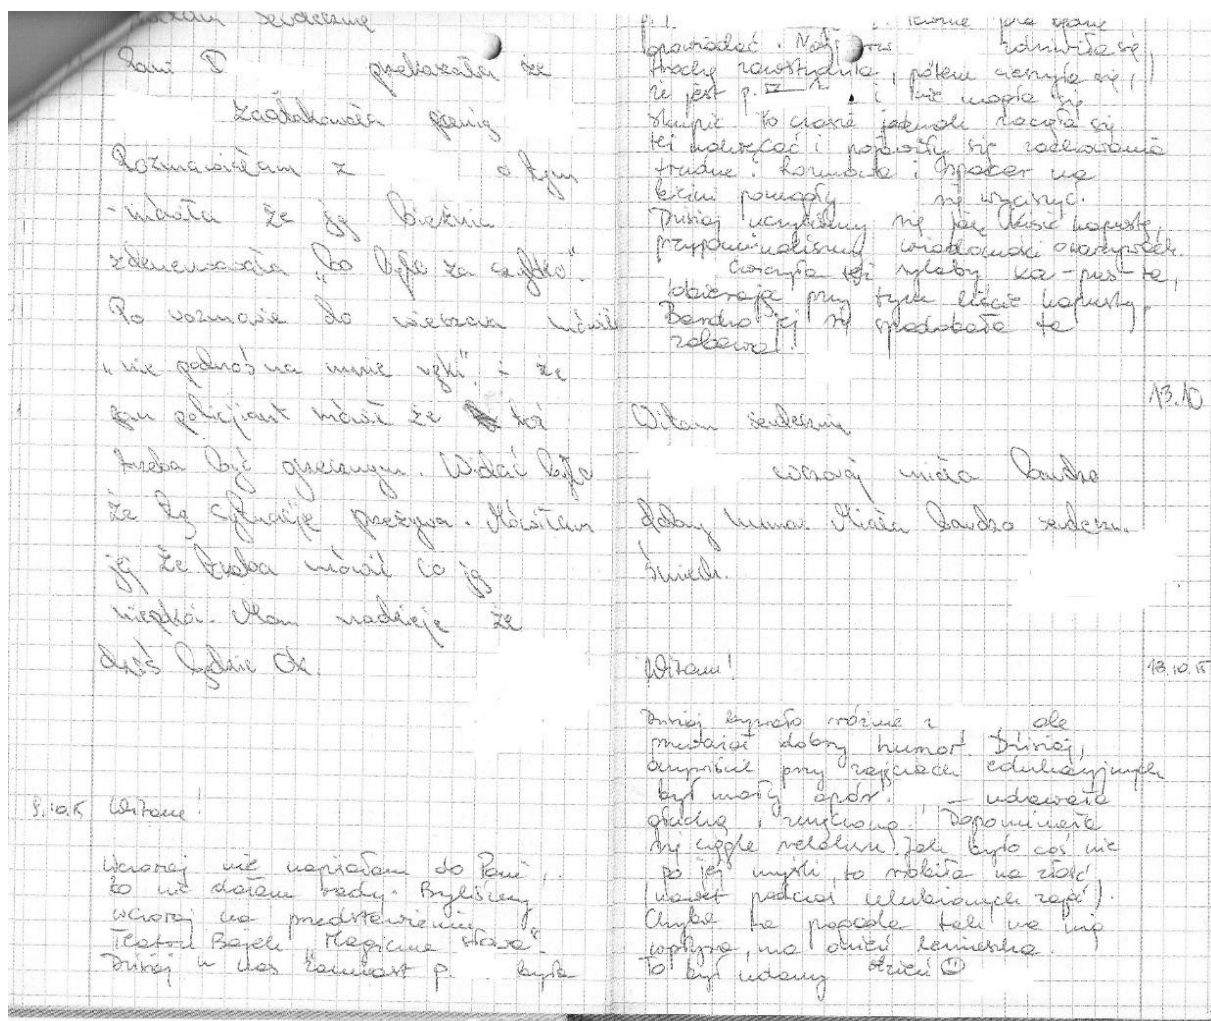 Witam serdecznie
Pani D przekazała że
zaatakowała panią
Rozmawiałam z o tym
- mówiła że ją bieżnia
zdenerwowała "bo było za szybko".
Po rozmowie do wieczora mówiła
"nie podnoś na mnie ręki" i że
pan policjant mówił że
trzeba być grzecznym. Widać było
że tą sytuację przeżywa. Mówiłam
jej że trzeba mówić co ją
Mam nadzieję że
dziś będzie Ok.
9.10.15 Witam!
Wczoraj nie napisałam do Pani,
bo nie dałam rady. Byliśmy
wczoraj na przedstawieniu
Teatru Bajek "Magiczne słowa"
Dzisiaj u nas zamiast p. była
opowiadać. zdziwiła się,
trochę zawstydziła, potem cieszyła się,
że jest p. i nie mogła się
skupić. Po czasie jednak zaczęła się
też nakręcać i pojawiły się zachowania
trudne. Rozmowa i spacer na
pomogły się wyciszyć.
Dzisiaj uczyliśmy się jak kisić kapustę,
przypominaliśmy wiadomości o warzywach.
Ćwiczyła też sylaby ka-pus-ta,
obierając przy tym liście kapusty.
Bardzo jej się spodobała ta
zabawa!
13.10
Witam serdecznie
wczoraj miała bardzo
dobry humor. Miała bardzo serdeczn.
śmiech.
Witam! 13.10.15
Dzisiaj bywało różnie z , ale
przeważał dobry humor. Dzisiaj,
oczywiście przy zajęciach edukacyjnych
był mały opór. , - udawała
głuchą, zmęczoną. Dopominała
się ciągle relaksu. Jak było coś nie
po jej myśli, to robiła na złość
(nawet podczas ulubionych zajęć).
Chyba ta pogoda tak na nią
wpływa, ma dzień leniuszka.
To był udany dzień ☺